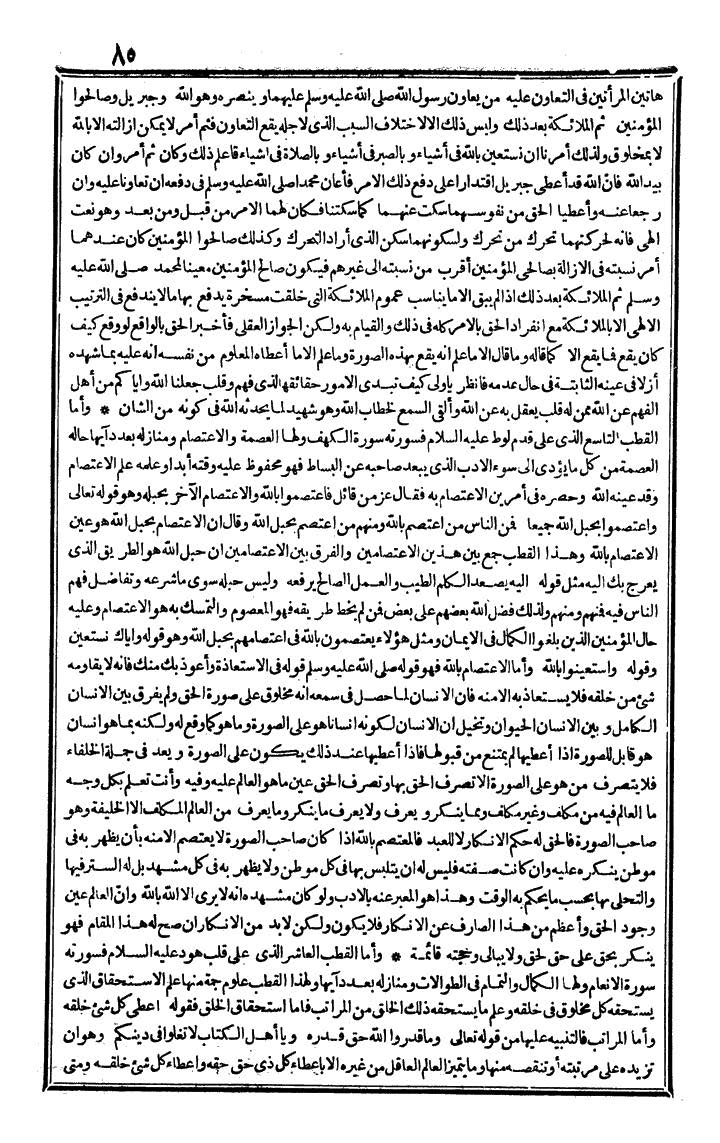 ٨٥
هاتين المرأتين فى التعاون عليه من يعاون رسول الله صلى الله عليه وسلم عليهما وينصره وهو الله وجبريل وصالحوا
المؤمنين ثم الملائكة بعد ذلك وليس ذلك الالاختلاف السبب الذى لاجله يقع التعاون فثم أمر لا يمكن ازالته الا بالله
لا بمخلوق ولذلك أمرنا ان نستعين بالله فى أشياء وبالصبر فى أشياء وبالصلاة فى اشياء فاعلم ذلك وكان ثم أمر وان كان
بيد الله فانّ الله قد أعطى جبريل اقتدارا على دفع ذلك الامر فأعان محمدا صلى الله عليه وسلم فى دفعه ان تعاونا عليه وان
رجعا عنه وأعطيا الحق من نفوسهما سكت عنهما كما سكتنا فكان لهما الامر من قبل ومن بعد وهو نعت
الهى فانه لحركتهما تحرك من تحرك ولسكونهما سكن الذى أراد التحرك وكذلك صالحوا المؤمنين كان عندهما
أمر نسبته فى الازالة بصالحى المؤمنين أقرب من نسبته الى غيرهم فيكون صالح المؤمنين معينا لمحمد صلى الله عليه
وسلم ثم الملائكة بعد ذلك اذالم يبق الاما يناسب عموم الملائكة التى خلقت مسخرة يدفع بها مالا يندفع فى الترتيب
الالهى الا بالملائكة مع انفراد الحق بالامر كله فى ذلك والقيام به ولكن الجواز العقلى فأخبر الحق بالواقع لو وقع كيف
كان يقع فما يقع الا كما قاله وما قال الاما علم انه يقع بهذه الصورة وما علم الا ما أعطاه المعلوم من نفسه انه عليه بما شهده
أزلا فى عينه الثابتة فى حال عدمه فانظر ياولى كيف تبدى الامور حقائقها لذى فهم وقلب جعلنا الله واياكم من أهل
الفهم عن الله ممن له قلب يعقل به عن الله وألقى السمع لخطاب الله وهو شهيد لما يحدثه الله فى كونه من الشان * وأما
القطب التاسع الذى على قدم لوط عليه السلام فسورته سورة الكهف ولها العصمة والاعتصام ومنازله بعدد آيها حاله
العصمة من كل ما يؤدى الى سوء الادب الذى يبعد صاحبه عن البساط فهو محفوظ عليه وقته أبدا وعلمه علم الاعتصام
وقد عينه الله وحصره فى أمرين الاعتصام به فقال عز من قائل فاعتصموا بالله والاعتصام الآخر بحبله وهو قوله تعالى
واعتصموا بحبل الله جميعا فمن الناس من اعتصم بالله ومنهم من اعتصم بحبل الله وقال ان الاعتصام بحبل الله هو عين
الاعتصام بالله وهذا القطب جمع بين هذين الاعتصامين والفرق بين الاعتصامين ان حبل الله هو الطريق الذى
يعرج بك اليه مثل قوله اليه يصعد الكلم الطيب والعمل الصالح يرفعه وليس حبله سوى ما شرعه وتفاضل فهم
الناس فيه فنهم ومنهم ولذلك فضل الله بعضهم على بعض فمن لم يخط طريقه فهو المعصوم والتمسك به هو الاعتصام وعليه
حال المؤمنين الذين بلغوا الكمال فى الايمان ومثل هؤلاء يعتصمون بالله فى اعتصامهم بحبل الله وهو قوله واياك نستعين
وقوله واستعينوا بالله وأما الاعتصام بالله فهو قوله صلى الله عليه وسلم قوله فى الاستعاذة وأعوذ بك منك فانه لا يقاومه
شئ من خلقه فلا يستعاذ به الامنه فان الانسان لما حصل فى سمعه انه مخلوق على صورة الحق ولم يفرق بين الانسان
الكامل وبين الانسان الحيوان وتخيل ان الانسان لكونه انسانا هو على الصورة وما هو كما وقع له ولكنه بما هو انسان
هو قابل للصورة اذا أعطيها لم يمتنع من قبولها فاذا أعطيها عند ذلك يكون على الصورة ويعد فى جملة الخلفاء
فلا يتصرف من هو على الصورة الا تصرف الحق بها وتصرف الحق عين ما هو العالم عليه وفيه وأنت تعلم بكل وجه
ما العالم فيه من مكلف وغير مكلف وما ينكر ويعرف ولا يعرف ما ينكر وما يعرف من العالم المكلف الا الخليفة وهو
صاحب الصورة فالحق له حكم الانكار لا للعبد فالمعتصم بالله اذا كان صاحب الصورة لا يعتصم الامنه بأن يظهر به فى
موطن ينكره عليه وان كانت صفته فليس له ان يتلبس بها فى كل موطن ولا يظهر به فى كل مشهد بل له السترفيها
والتحلى بها بحسب ما يحكم به الوقت وهذا هو المعبر عنه بالادب ولو كان مشهده انه لا يرى الا الله بالله وانّ العالم عين
وجود الحق وأعظم من هذا الصارف عن الانكار فلا يكون ولكن لا بد من الانكاران صح له هذا المقام فهو
ينكر بحق على حق لحق ولا يبالى وحجته قائمة * وأما القطب العاشر الذى على قلب هود عليه السلام فسورته
سورة الانعام ولها الكمال والتمام فى الطوالات ومنازله بعدد آيها ولهذا القطب علوم جمة منها علم الاستحقاق الذى
يستحقه كل مخلوق فى خلقه وعلم ما يستحقه ذلك الخلق من المراتب فاما استحقاق الخلق فقوله اعطى كل شئ خلقه
وأما المراتب فالتنبيه عليها من قوله تعالى وما قدروا الله حق قدره ويا أهل الكتاب لا تغلوا فى دينكم وهو ان
تزيده على مرتبته أو تنقصه منها وما يتميز العالم العاقل من غيره الا باعطاء كل ذى حق حقه واعطاء كل شئ خلقه ومتى